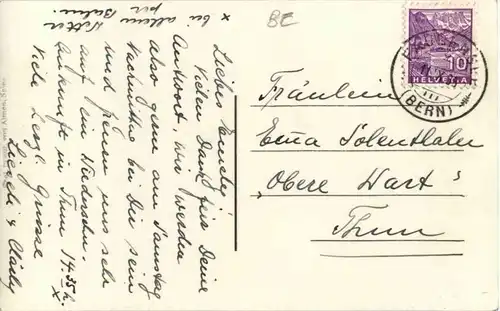 Liebes Emely!
Vielen Dank für Deine
Antwort. Wir werden
also gerne am Samstag
Nachmittag bei Dir sein
und freuen uns sehr
auf ein Wiedersehn.
Ankunft in Thun 14.35 h. x
Viele herzl. Grüsse
x bei allem
Wetter
per Bahn.
BE
10
HELVETIA
III
(BERN)
Fräulein
Emma Sollenthaler
„Obere Wart“
Thun